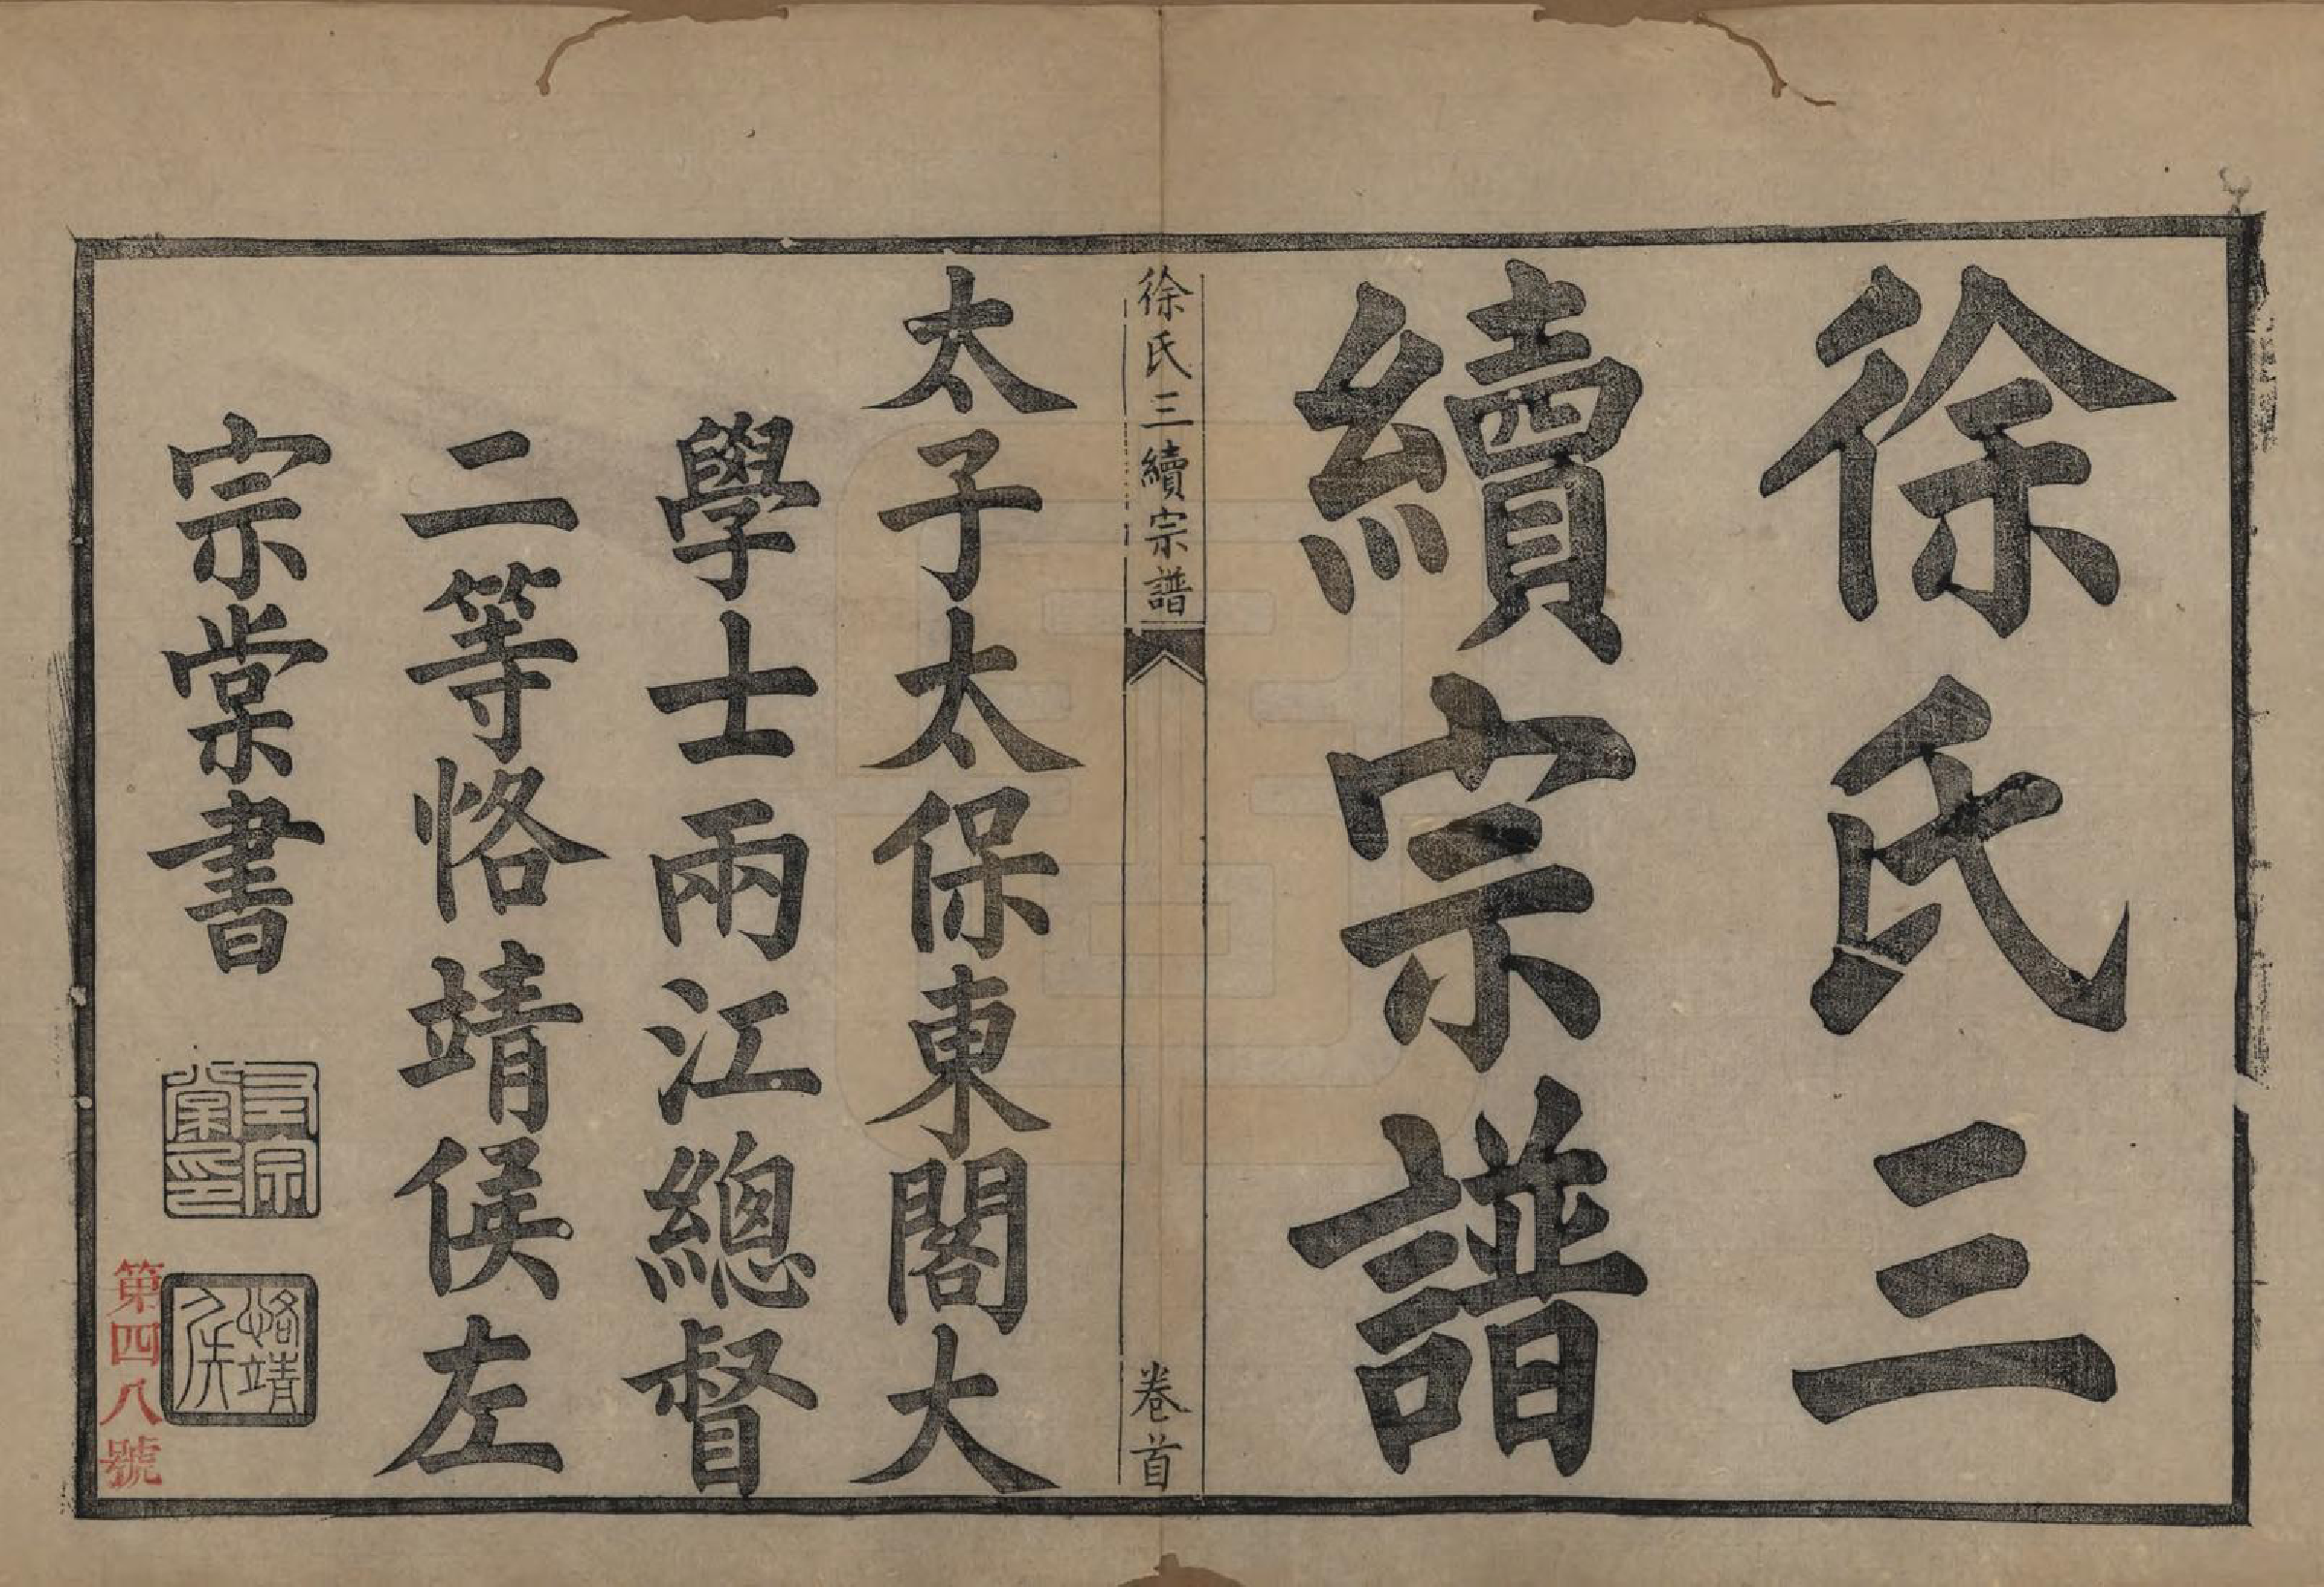 徐氏三
續宗譜
徐氏三續宗譜
卷首
太子太保東閣大
學士兩江總督
二等恪靖侯左
宗棠書
左宗棠印
恪靖侯
第四八號